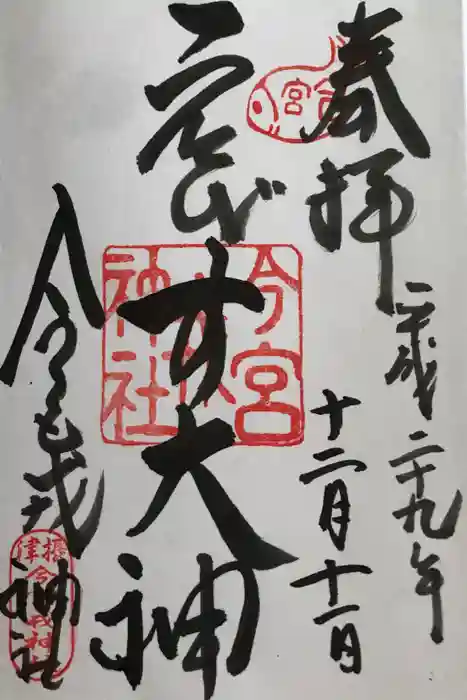 奉拝
平成二十九年
十二月十一日
今宮
ゑびす大神
今宮戎神社
今宮戎神社
攝津
今宮戎神社